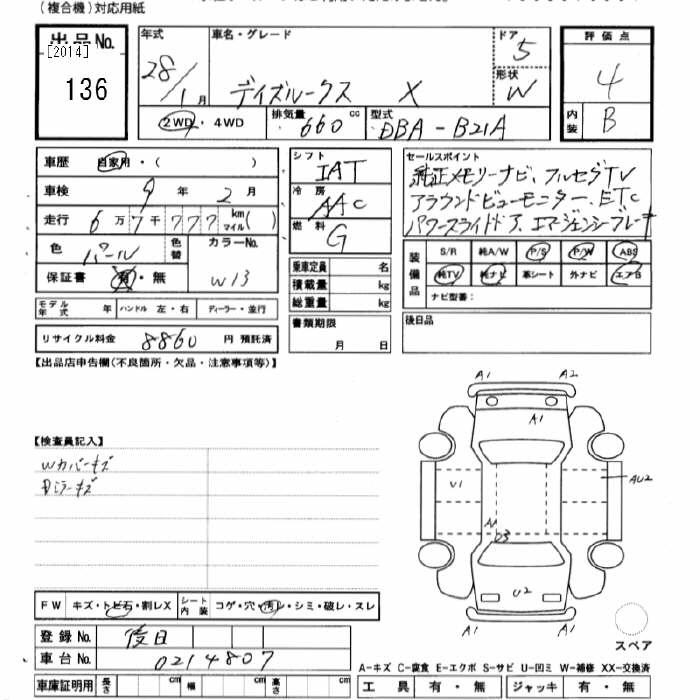 (複合機)対応用紙
出品No.
[2014]
136
年式
28/1月
車名・グレード
デイズルークス X
ドア
5
形状
W
評価点
4
内装
B
2WD・4WD
排気量 660 cc
型式 DBA-B21A
車歴 自家用・( )
車検 9年 2月
走行 6万7千777 km マイル( )
色 パール
色替
カラーNo. W13
保証書 有・無
モデル年式 年 ハンドル 左・右 ディーラー・並行
リサイクル料金 8860 円 預託済
シフト IAT
冷房 AAC
燃料 G
乗車定員 名
積載量 kg
総重量 kg
書類期限
月 日
セールスポイント
純正メモリーナビ、フルセグTV
アラウンドビューモニター、ETC
パワースライドドア、エマージェンシーブレーキ
装備品
S/R 純A/W P/S P/W ABS
純TV 純ナビ 革シート 外ナビ エアB
ナビ型番:
後日品
【出品店申告欄(不良箇所・欠品・注意事項等)】
【検査員記入】
Wカバーキズ
ミラーキズ
A1 A2
A1
U1
AU2
U3
U2
A1 A1
スペア
FW キズ・トビ石・割レX
シート内装 コゲ・穴・汚レ・シミ・破レ・スレ
登録No. 後日
車台No. 0214807
車庫証明用 長さ cm 幅 cm 高さ cm
A-キズ C-腐食 E-エクボ S-サビ U-凹ミ W-補修 XX-交換済
工具 有・無 ジャッキ 有・無